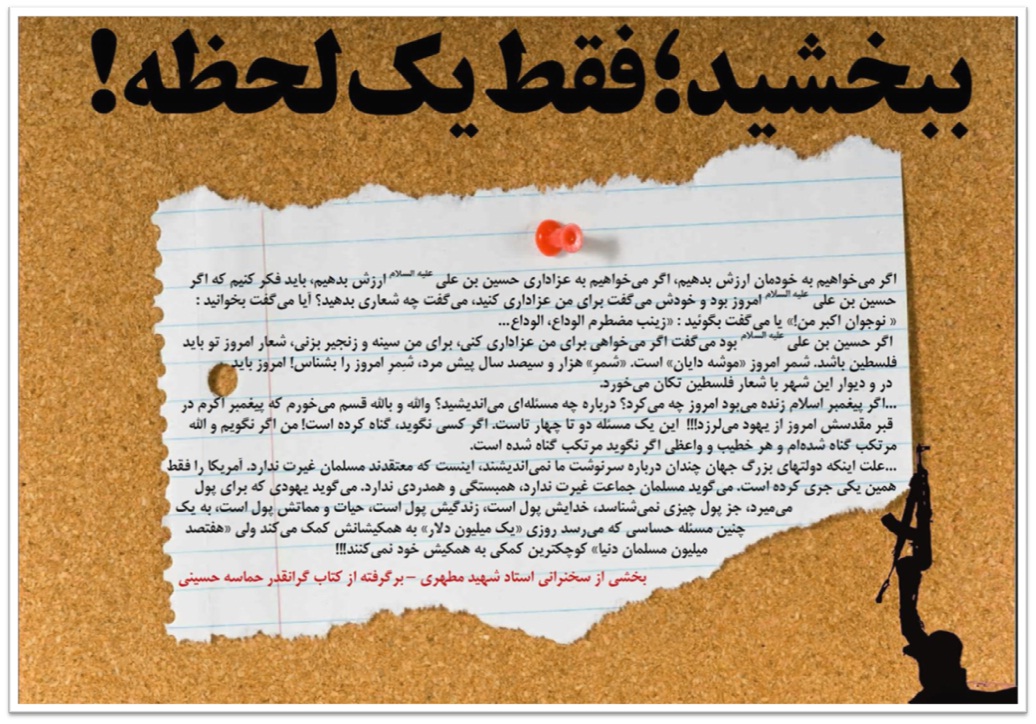 ببخشید؛ فقط یک لحظه!
اگر می‌خواهیم به خودمان ارزش بدهیم، اگر می‌خواهیم به عزاداری حسین بن علی علیه السلام ارزش بدهیم، باید فکر کنیم که اگر
حسین بن علی علیه السلام امروز بود و خودش می‌گفت برای من عزاداری کنید، می‌گفت چه شعاری بدهید؟ آیا می‌گفت بخوانید :
« نوجوان اکبر من!» یا می‌گفت بگوئید : «زینب مضطرم الوداع، الوداع...
اگر حسین بن علی علیه السلام بود می‌گفت اگر می‌خواهی برای من عزاداری کنی، برای من سینه و زنجیر بزنی، شعار امروز تو باید
فلسطین باشد. شمر امروز «موشه دایان» است. «شمرِ» هزار و سیصد سال پیش مرد، شمرِ امروز را بشناس! امروز باید
در و دیوار این شهر با شعار فلسطین تکان می‌خورد.
...اگر پیغمبر اسلام زنده می‌بود امروز چه می‌کرد؟ درباره چه مسئله‌ای می‌اندیشید؟ والله و بالله قسم می‌خورم که پیغمبر اکرم در
قبر مقدسش امروز از یهود می‌لرزد!!! این یک مسئله دو تا چهار تاست. اگر کسی نگوید، گناه کرده است! من اگر نگویم و الله
مرتکب گناه شده‌ام و هر خطیب و واعظی اگر نگوید مرتکب گناه شده است.
...علت اینکه دولتهای بزرگ جهان چندان درباره سرنوشت ما نمی‌اندیشند، اینست که معتقدند مسلمان غیرت ندارد. آمریکا را فقط
همین یکی جری کرده است. می‌گوید مسلمان جماعت غیرت ندارد، همبستگی و همدردی ندارد. می‌گوید یهودی که برای پول
می‌میرد، جز پول چیزی نمی‌شناسد، خدایش پول است، زندگیش پول است، حیات و مماتش پول است، به یک
چنین مسئله حساسی که می‌رسد روزی «یک میلیون دلار» به همکیشانش کمک می‌کند ولی «هفتصد
میلیون مسلمان دنیا» کوچکترین کمکی به همکیش خود نمی‌کنند!!!
بخشی از سخنرانی استاد شهید مطهری – برگرفته از کتاب گرانقدر حماسه حسینی